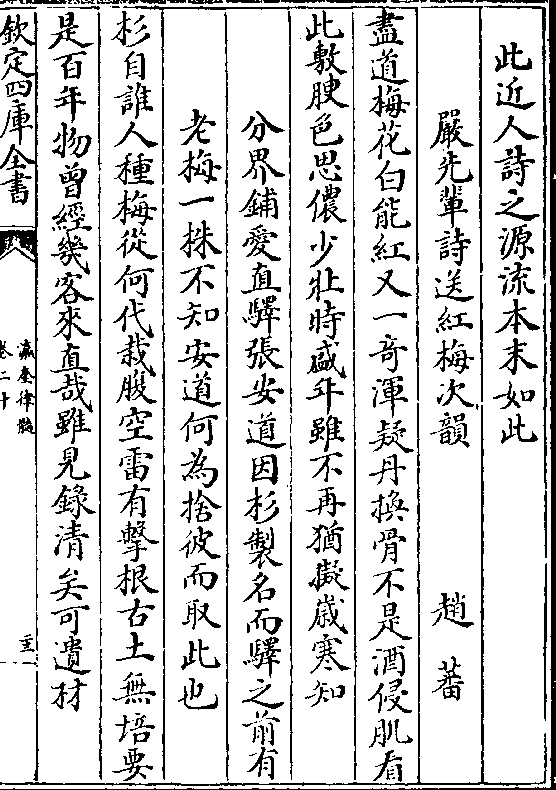 此近人詩之源流本末如此
嚴先輩詩送紅梅次韻　趙蕃
盡道梅花白能紅又一奇渾疑丹換骨不是酒侵肌看
此敷腴色思儂少壯時盛年雖不再猶擬嵗寒知
分界鋪愛直驛張安道因杉製名而驛之前有
老梅一株不知安道何為捨彼而取此也
杉自誰人種梅從何代栽腹空雷有擊根古土無培要
是百年物曾經幾客來直哉雖見錄清矣可遺材
欽定四庫全書
瀛奎律髓
卷二十